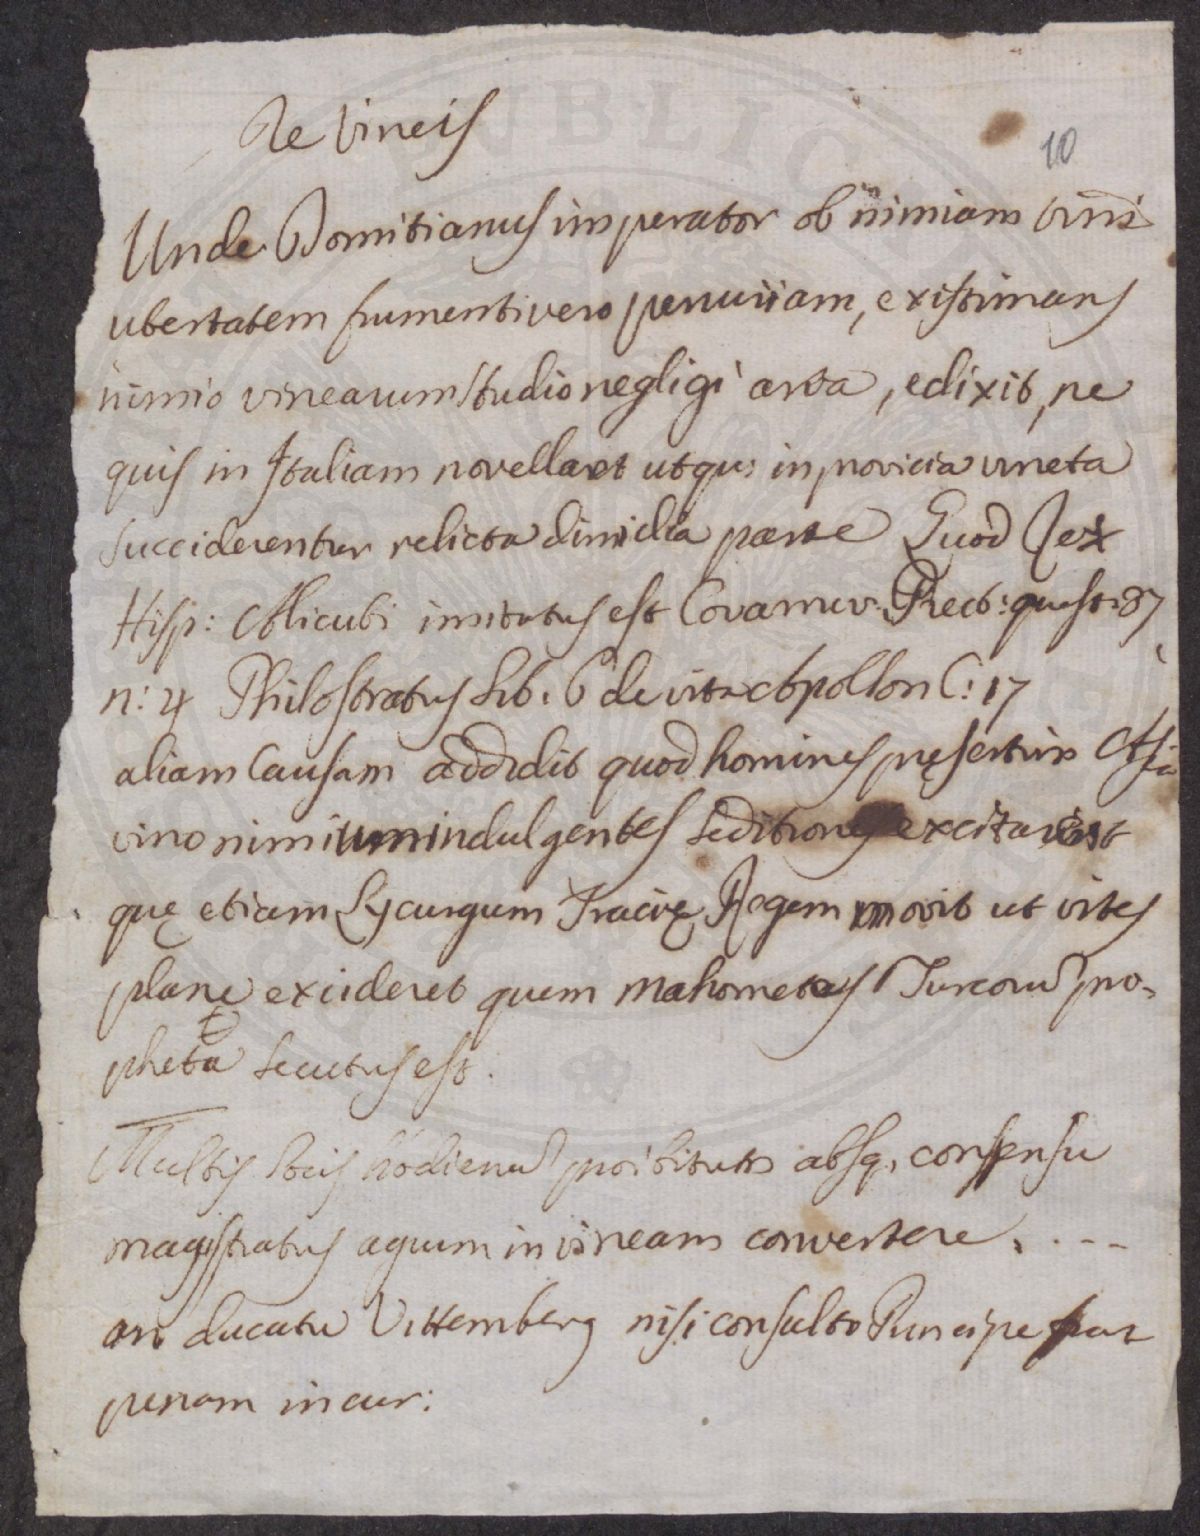 De Vineis
10
Unde Domitianus imperator ob nimiam vini
ubertatem frumenti vero penuriam, existimans
nimio vinearum studio negligi arva, edixit, ne
quis in Italiam novellaret utqu: in provicia vineta
succiderentur relicta dimidia parte Quod Rex
Hisp: Alicubi imitatus est Covarruv. Pract: quest: 37
n: 4 Philostratus lib. 6 de vita Apollon C: 17
aliam Causam addidit quod homines pręsertim Asia
vino nimium indulgentes seditiones excitarent
quę etiam Lycurgum Tracię Regem movit ut vites
plane excideret quem Mahometes Turcorū pro-
pheta secutus est.
Multis locis hodienū proibitum absq. consensu
magistratus agrum in vineam convertere. . - -
an ducatu Vittemberg nisi consulto Principe
penam incur: